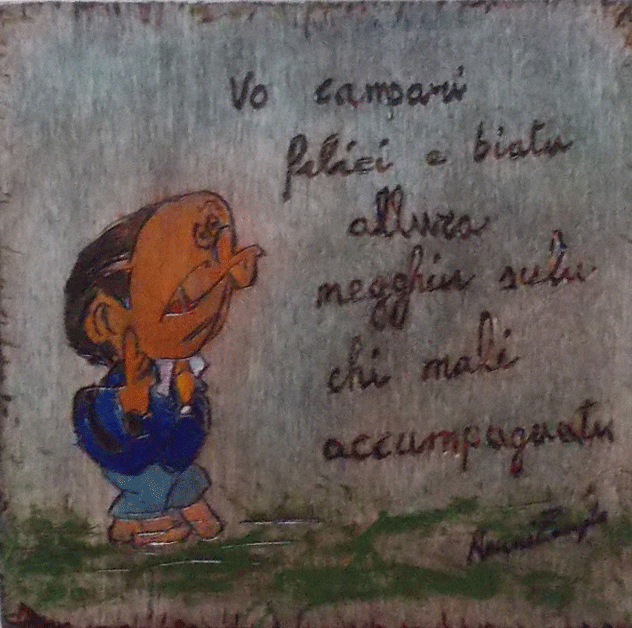 Vo campari
felici e biatu
allura
megghiu sulu
chi mali
accumpagnatu